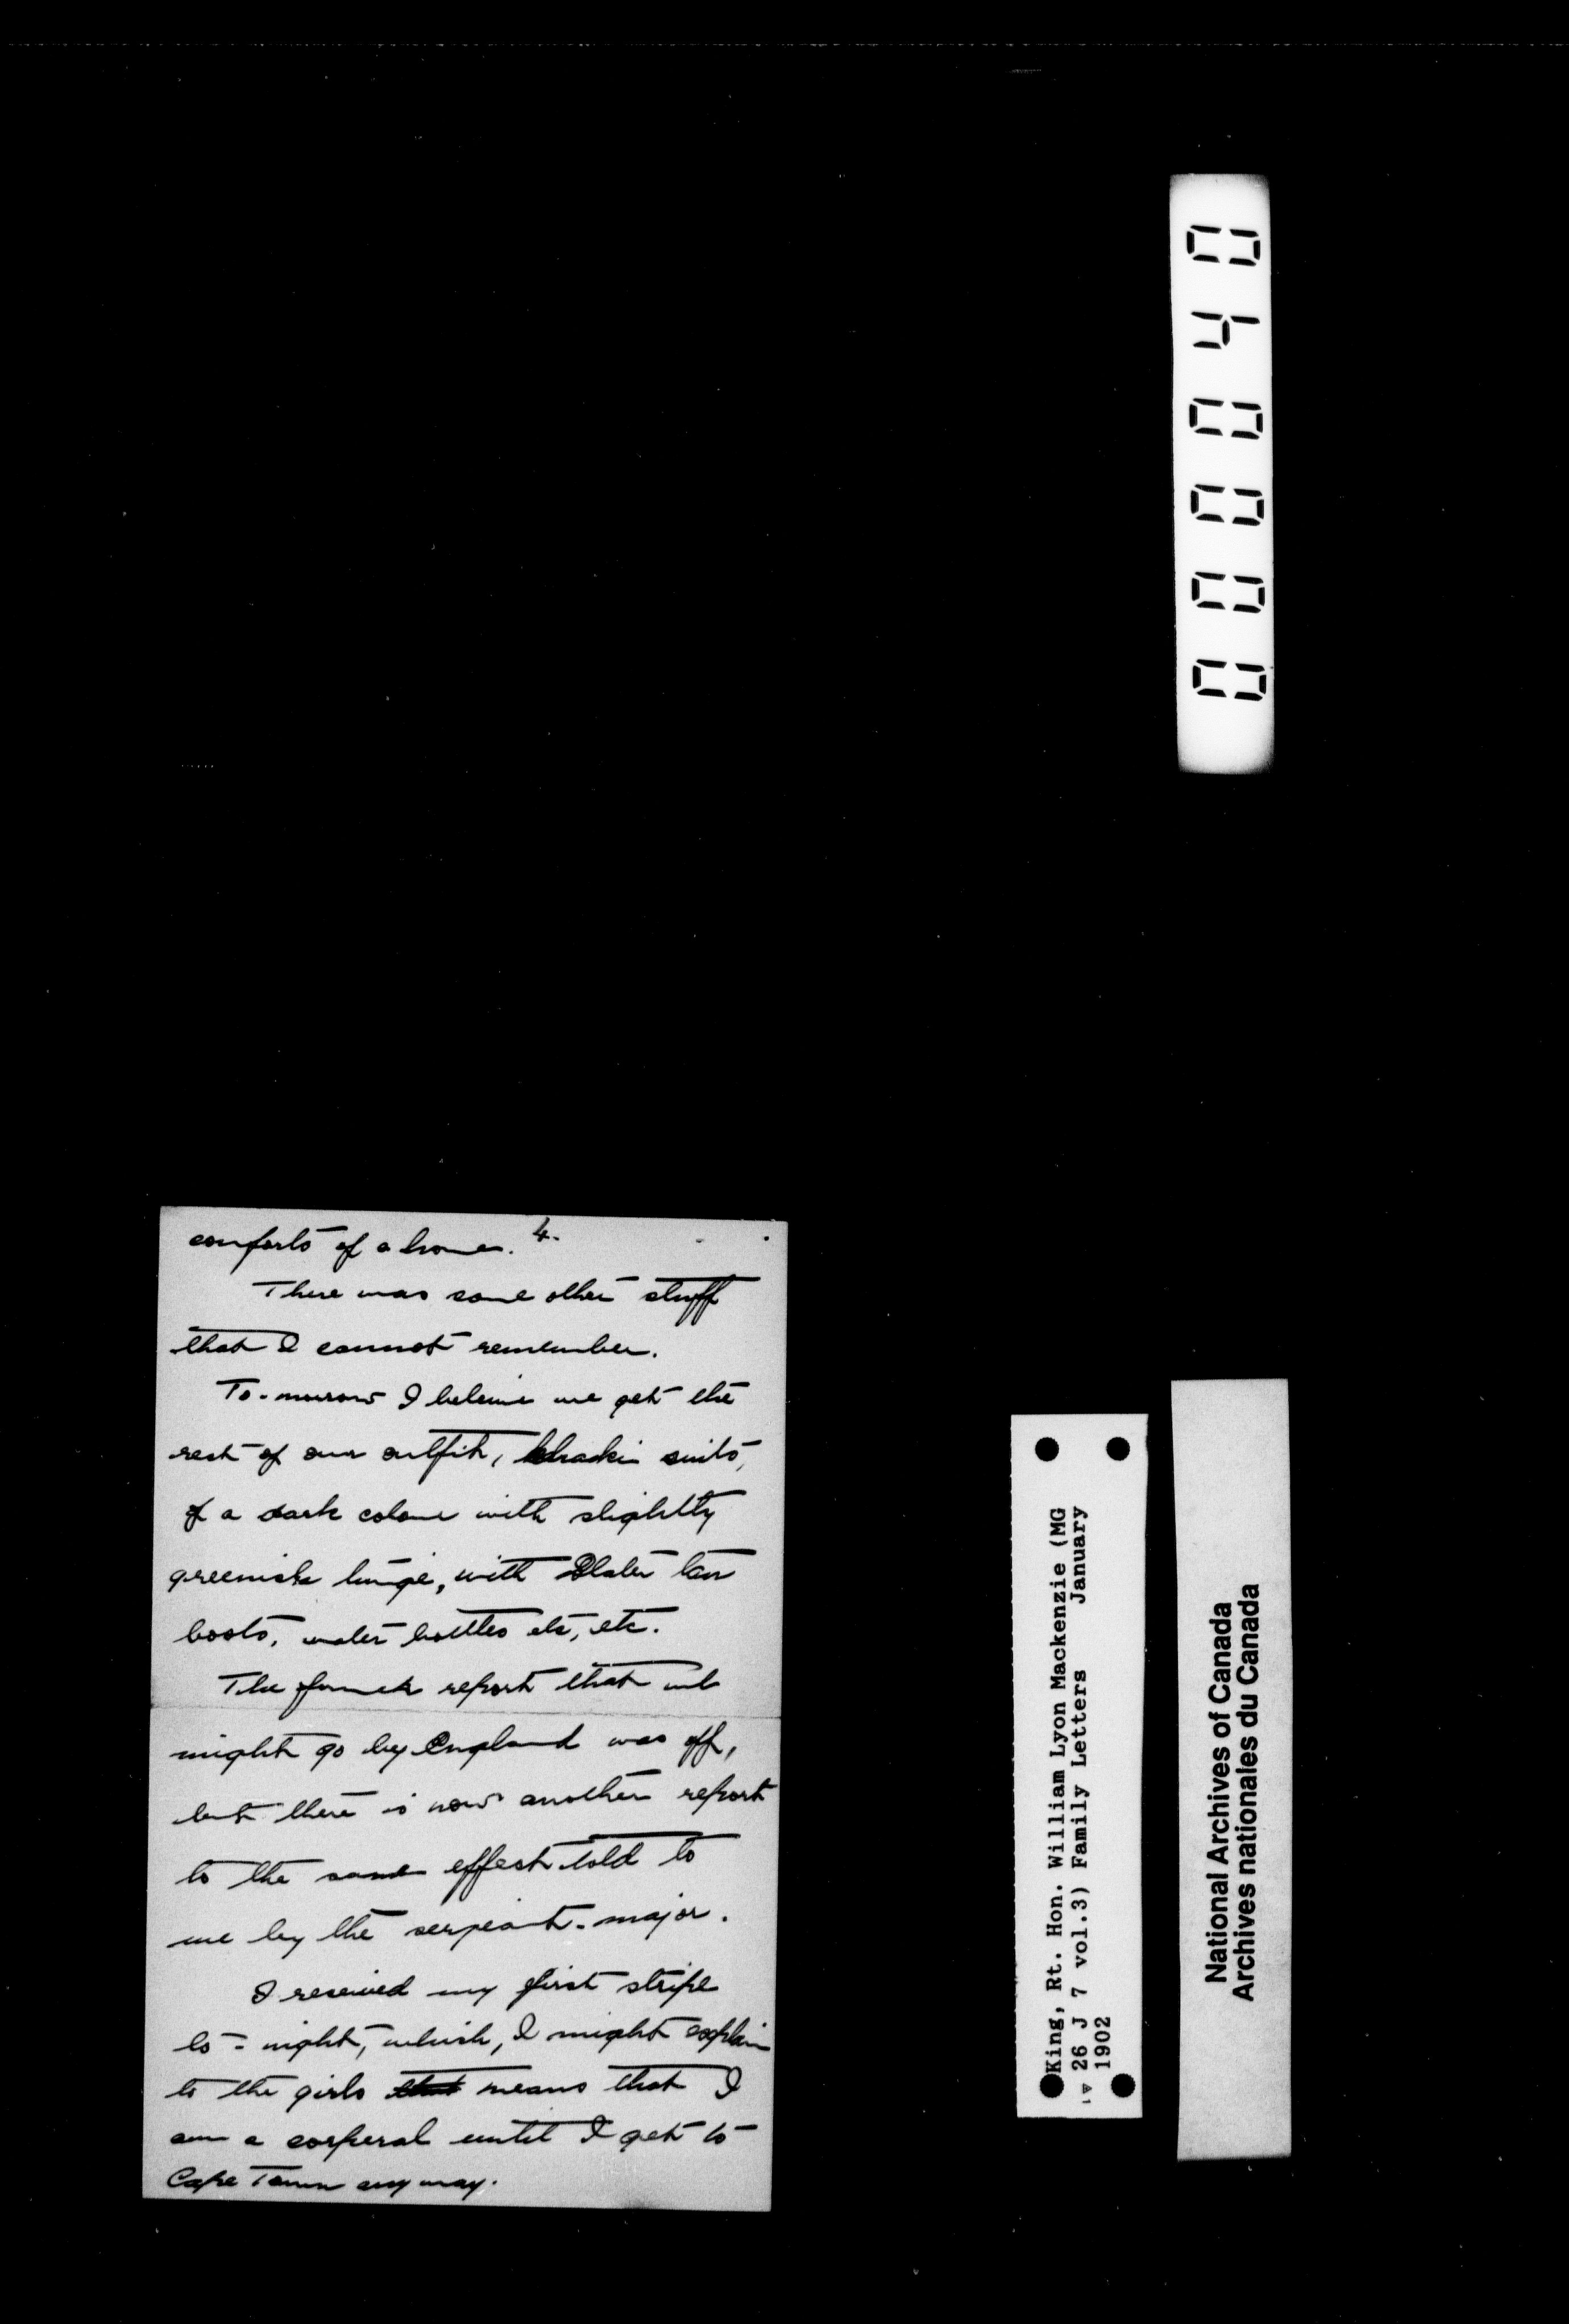 4.
comforts of a home.
There was some other stuff
that I cannot remember.
To-morrow I beleive we get the
rest of our outfit, khaki suits,
of a dark colour with slightly
greenish tinge, with Slater tan
boots, water bottles etc, etc.
The former report that we
might go by England was off,
but there is now another report
to the same effect told to
me by the sergeant-major.
I received my first stripe
to-night, which, I might explain
to the girls that means that I
am a corperal until I get to
Cape Town any way.
King, Rt. Hon. William Lyon Mackenzie (MG
26 J 7 vol.3) Family Letters January
1902
National Archives of Canada
Archives nationales du Canada
000040